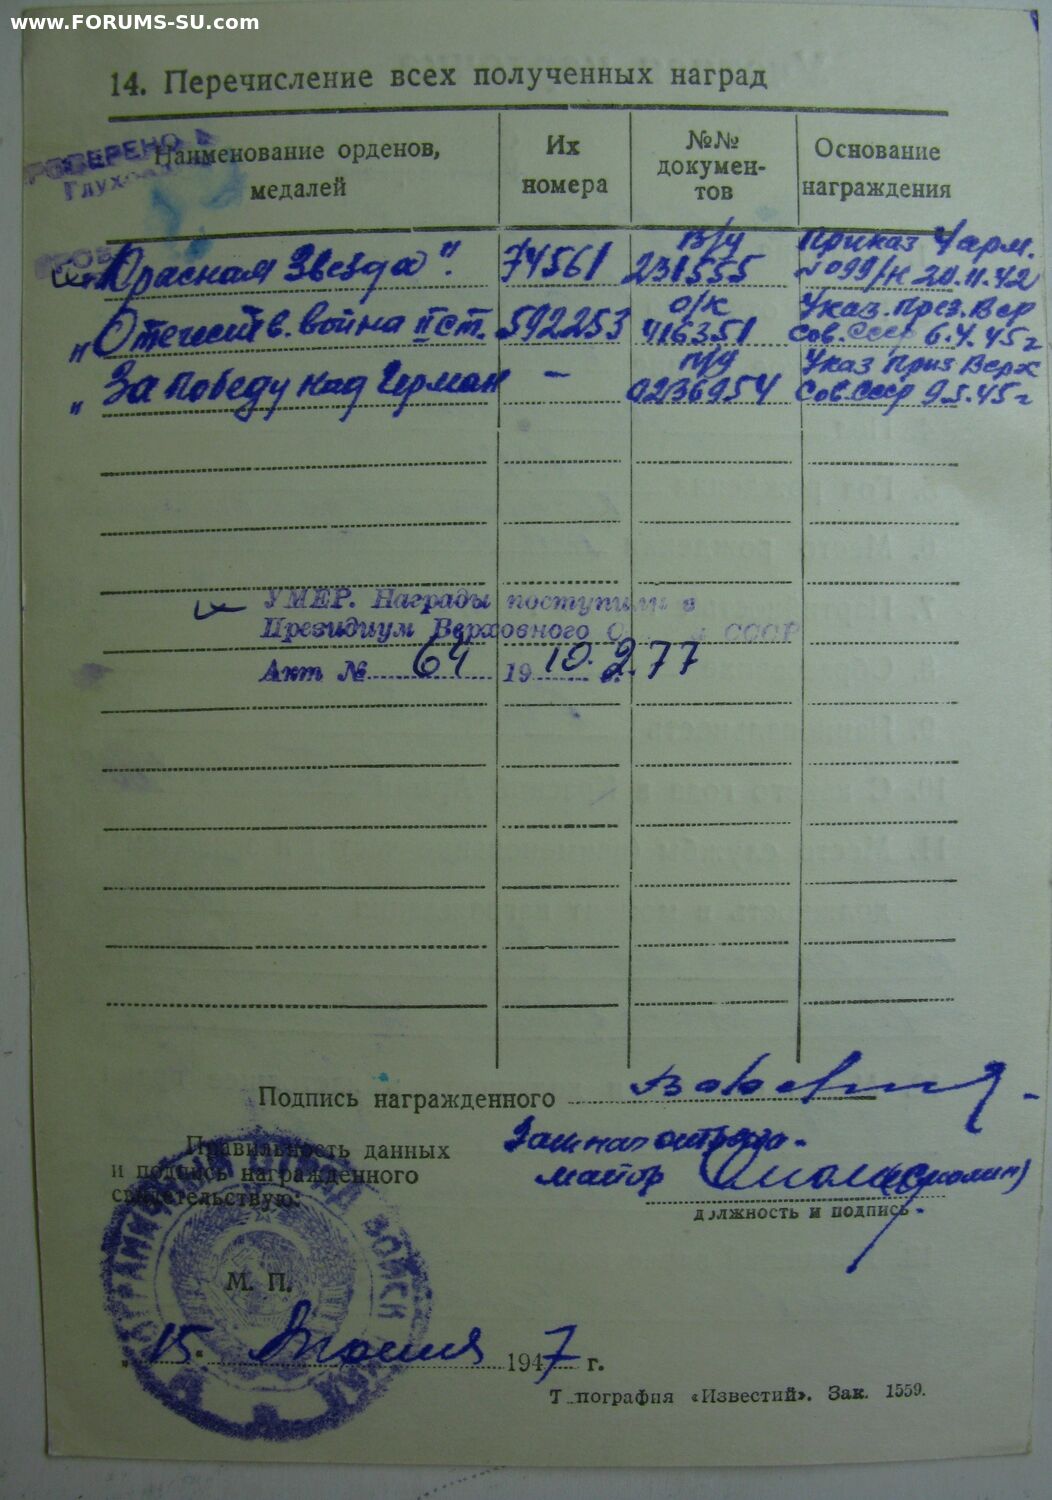 www.FORUMS-SU.com
14. Перечисление всех полученных наград
Наименование орденов, медалей
Их номера
№№ докумен-
тов
Основание награждения
ПРОВЕРЕНО
"Красная Звезда". 74561 в/у 231555 Приказ 4 арм. №099/н 20.11.42
"Отечеств. война II ст. 592253 о/к 416351 Указ. През. Вер Сов. СССР 6.4.45г
"За победу над Герман - п/у 0236954 Указ През Верх Сов. СССР 9.5.45г
УМЕР. Награды поступили в
Президиум Верховного СССР
Акт № 64 19 10.2.77
Подпись награжденного
Правильность данных
и подпись награжденного
свидетельствую:
майор (Смолин)
должность и подпись
ПОГРАНИЧНЫЙ ОТРЯД ВОЙСК
М. П.
"15" Июля 1947 г.
Т пография «Известий». Зак. 1559.